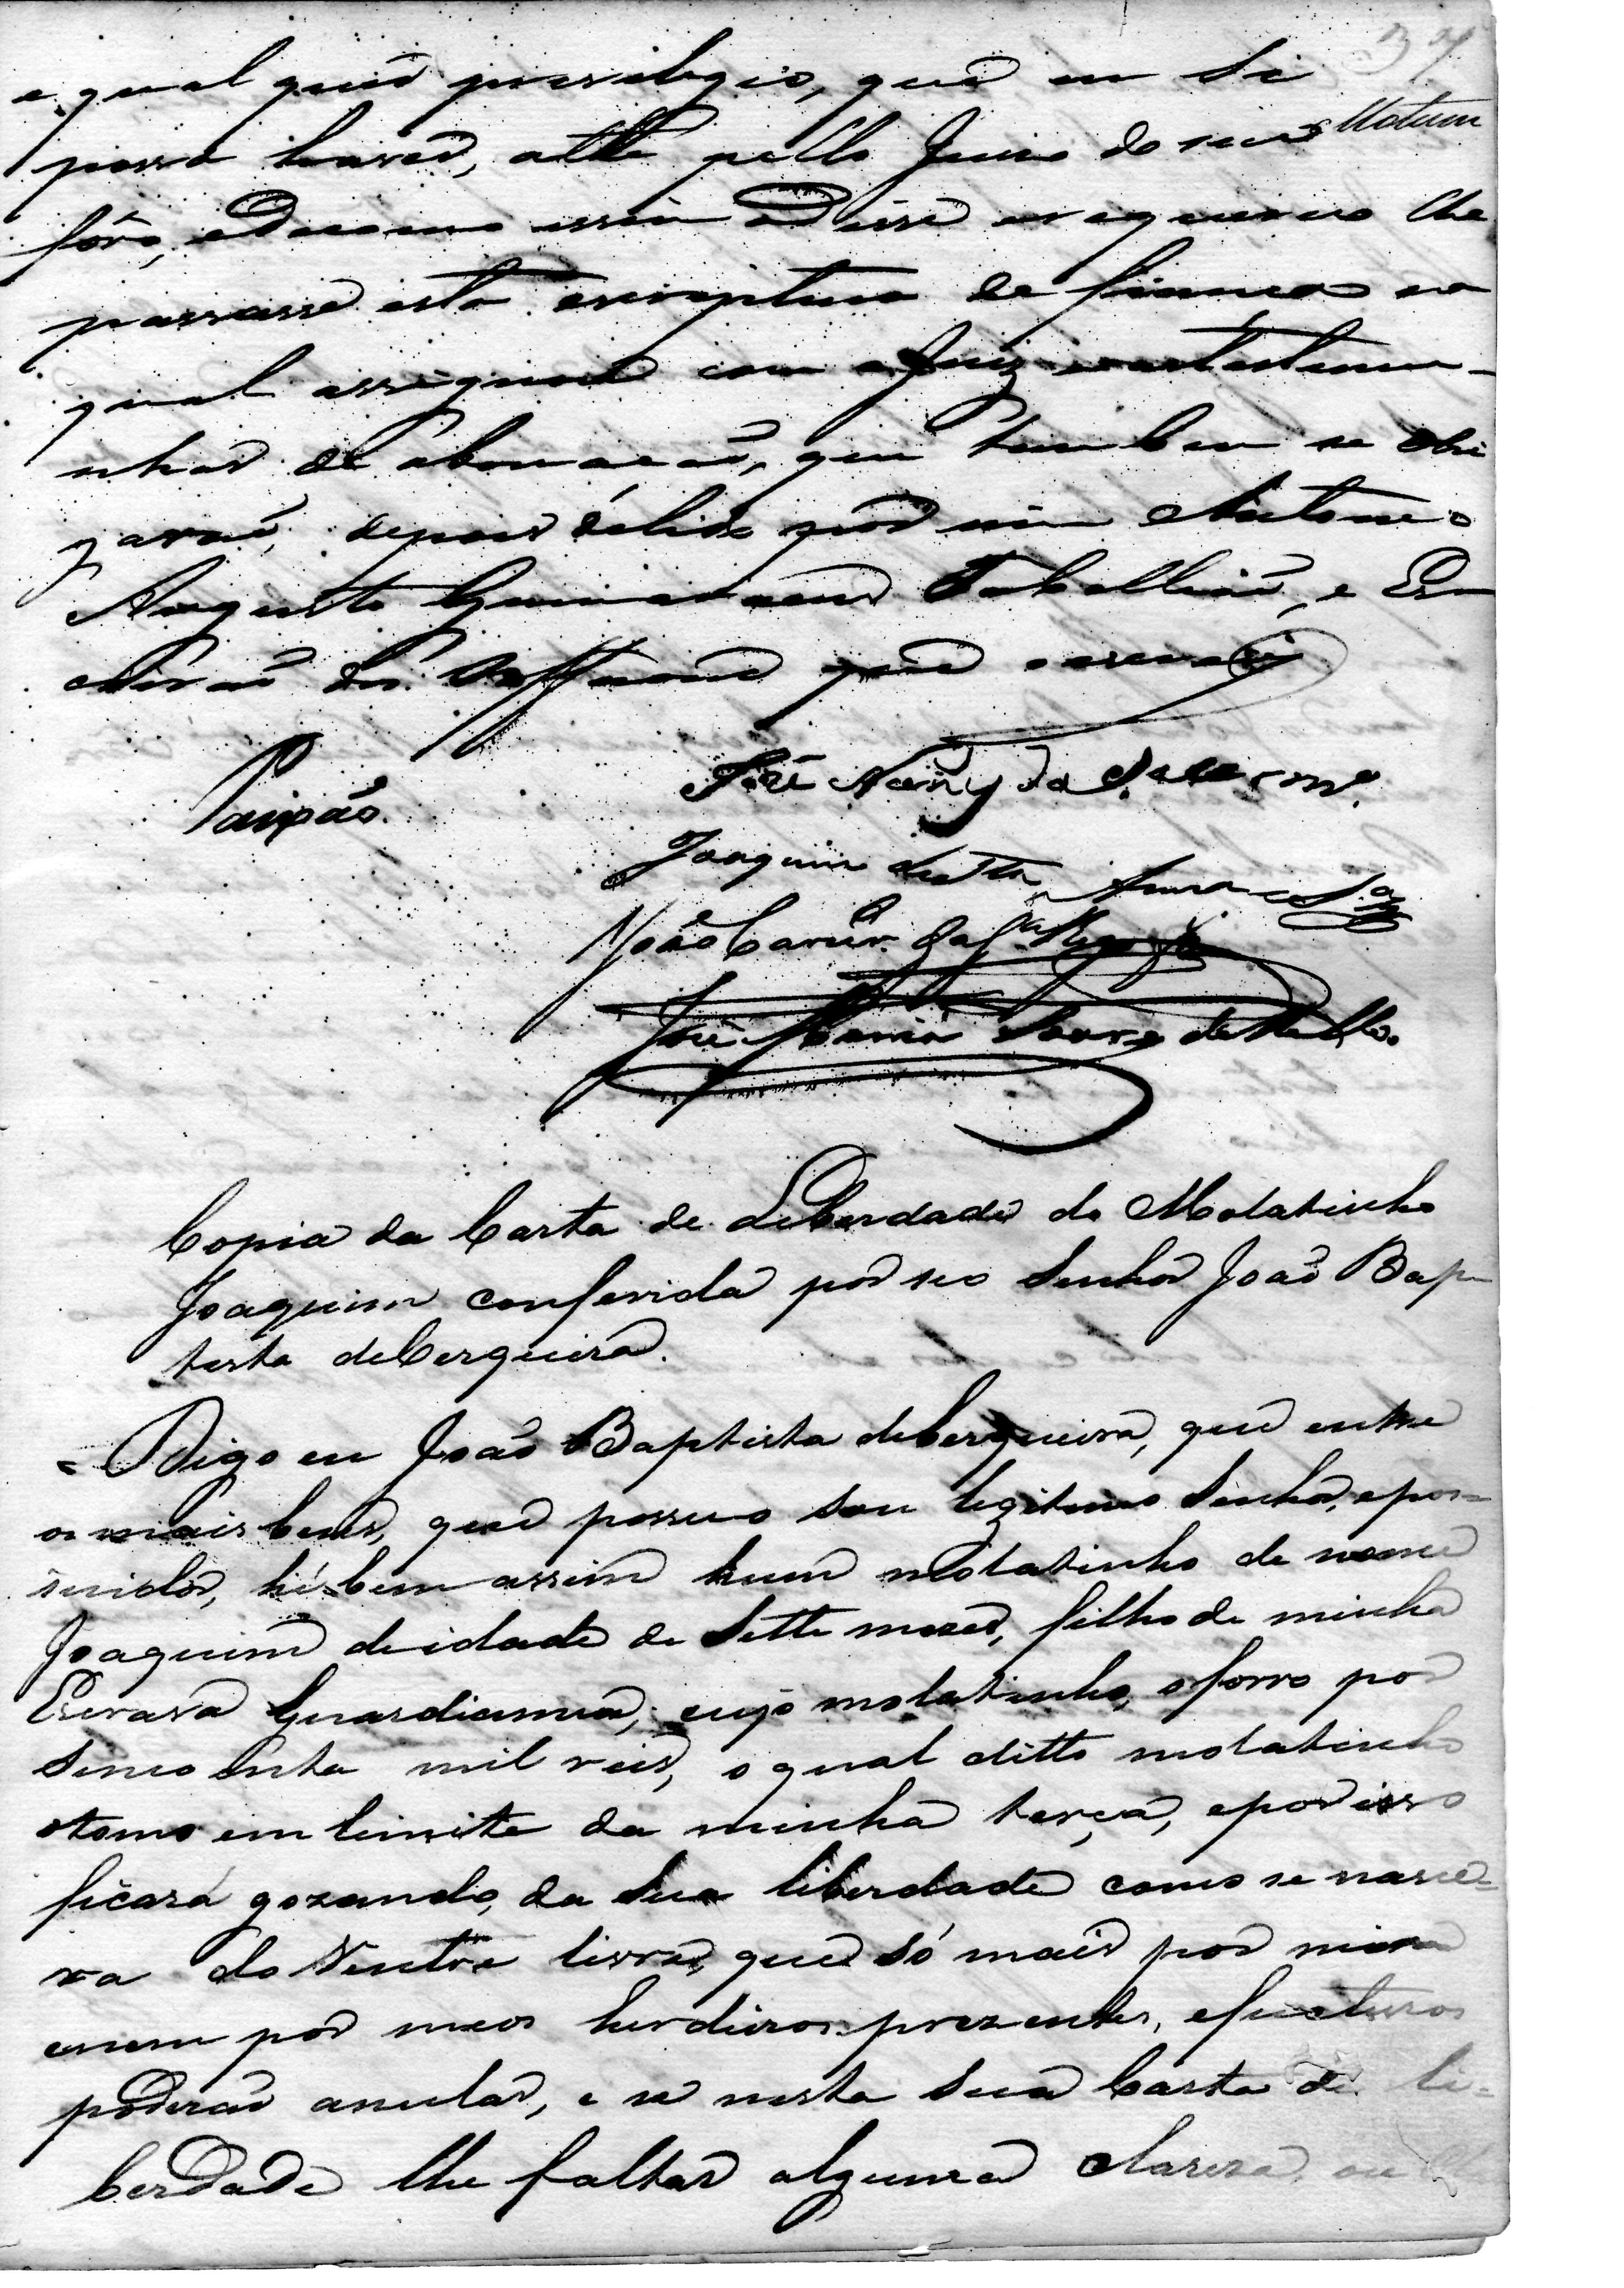 e qual quer previlegio, que em si
possa haver, athe pello Juizo de seu
fôro, e de como assim o disse e requereo lhe
passasse esta escriptura de fiança na
qual assignou com o Juiz e as testemu-
nhas de abonação, que tambem se obri
garaõ, depois de lida por mim Antonio
Augusto Guimaraens Taballiaõ, e Es
crivaõ que o escrevi
Paixão.
José
Joaquim de Sta Anna
João Xavier da
José Maria Soares de Mello.
Copia da Carta de Liberdade do Molatinho
Joaquim conferida por seo Senhor Joaõ Bap
tista deCerqueira.
Digo eu Joaõ Baptista deCerqueira, que entre
os mais bens, que possuo sou legitimo Senhor, epos-
suidor, hé bem assim hum molatinho de nome
Joaquim deidade de Sette mezes, filho de minha
Escrava Guardianna, cujo molatinho, oforro por
Sincoenta mil reis, oqual ditto molatinho
otomo em limite da minha terça, epor isso
ficará gozando, da Sua liberdade como se nasce-
ra do Ventre livre, que só mais por mim
enem por meos herdeiros prezentes, efucturos
poderaõ anular, e se nesta Sua Carta de li-
berdade lhe faltar alguma clareza, ou